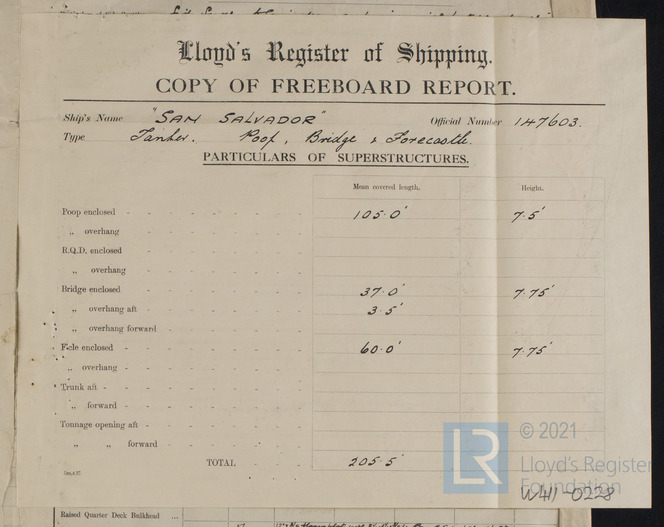 Lloyd's Register of Shipping.
COPY OF FREEBOARD REPORT.
Ship's Name "SAN SALVADOR" Official Number 147603.
Type Tanker. Poop, Bridge & Forecastle.
PARTICULARS OF SUPERSTRUCTURES.
Mean covered length. Height.
Poop enclosed - - - - - - 105·0' 7·5'
„ overhang - - - - -
R.Q.D. enclosed - - - - - -
„ overhang - - - - -
Bridge enclosed - - - - - - 37·0' 7·75'
„ overhang aft - - - - - 3·5'
„ overhang forward - - - -
F'cle enclosed - - - - - - 60·0' 7·75'
„ overhang - - - - - -
Trunk aft - - - - - - -
„ forward - - - - - -
Tonnage opening aft - - - - -
„ „ forward - - - -
TOTAL - - - 205·5'
LR
© 2021
Lloyd's Register
Foundation
W411-0228
Raised Quarter Deck Bulkhead ...